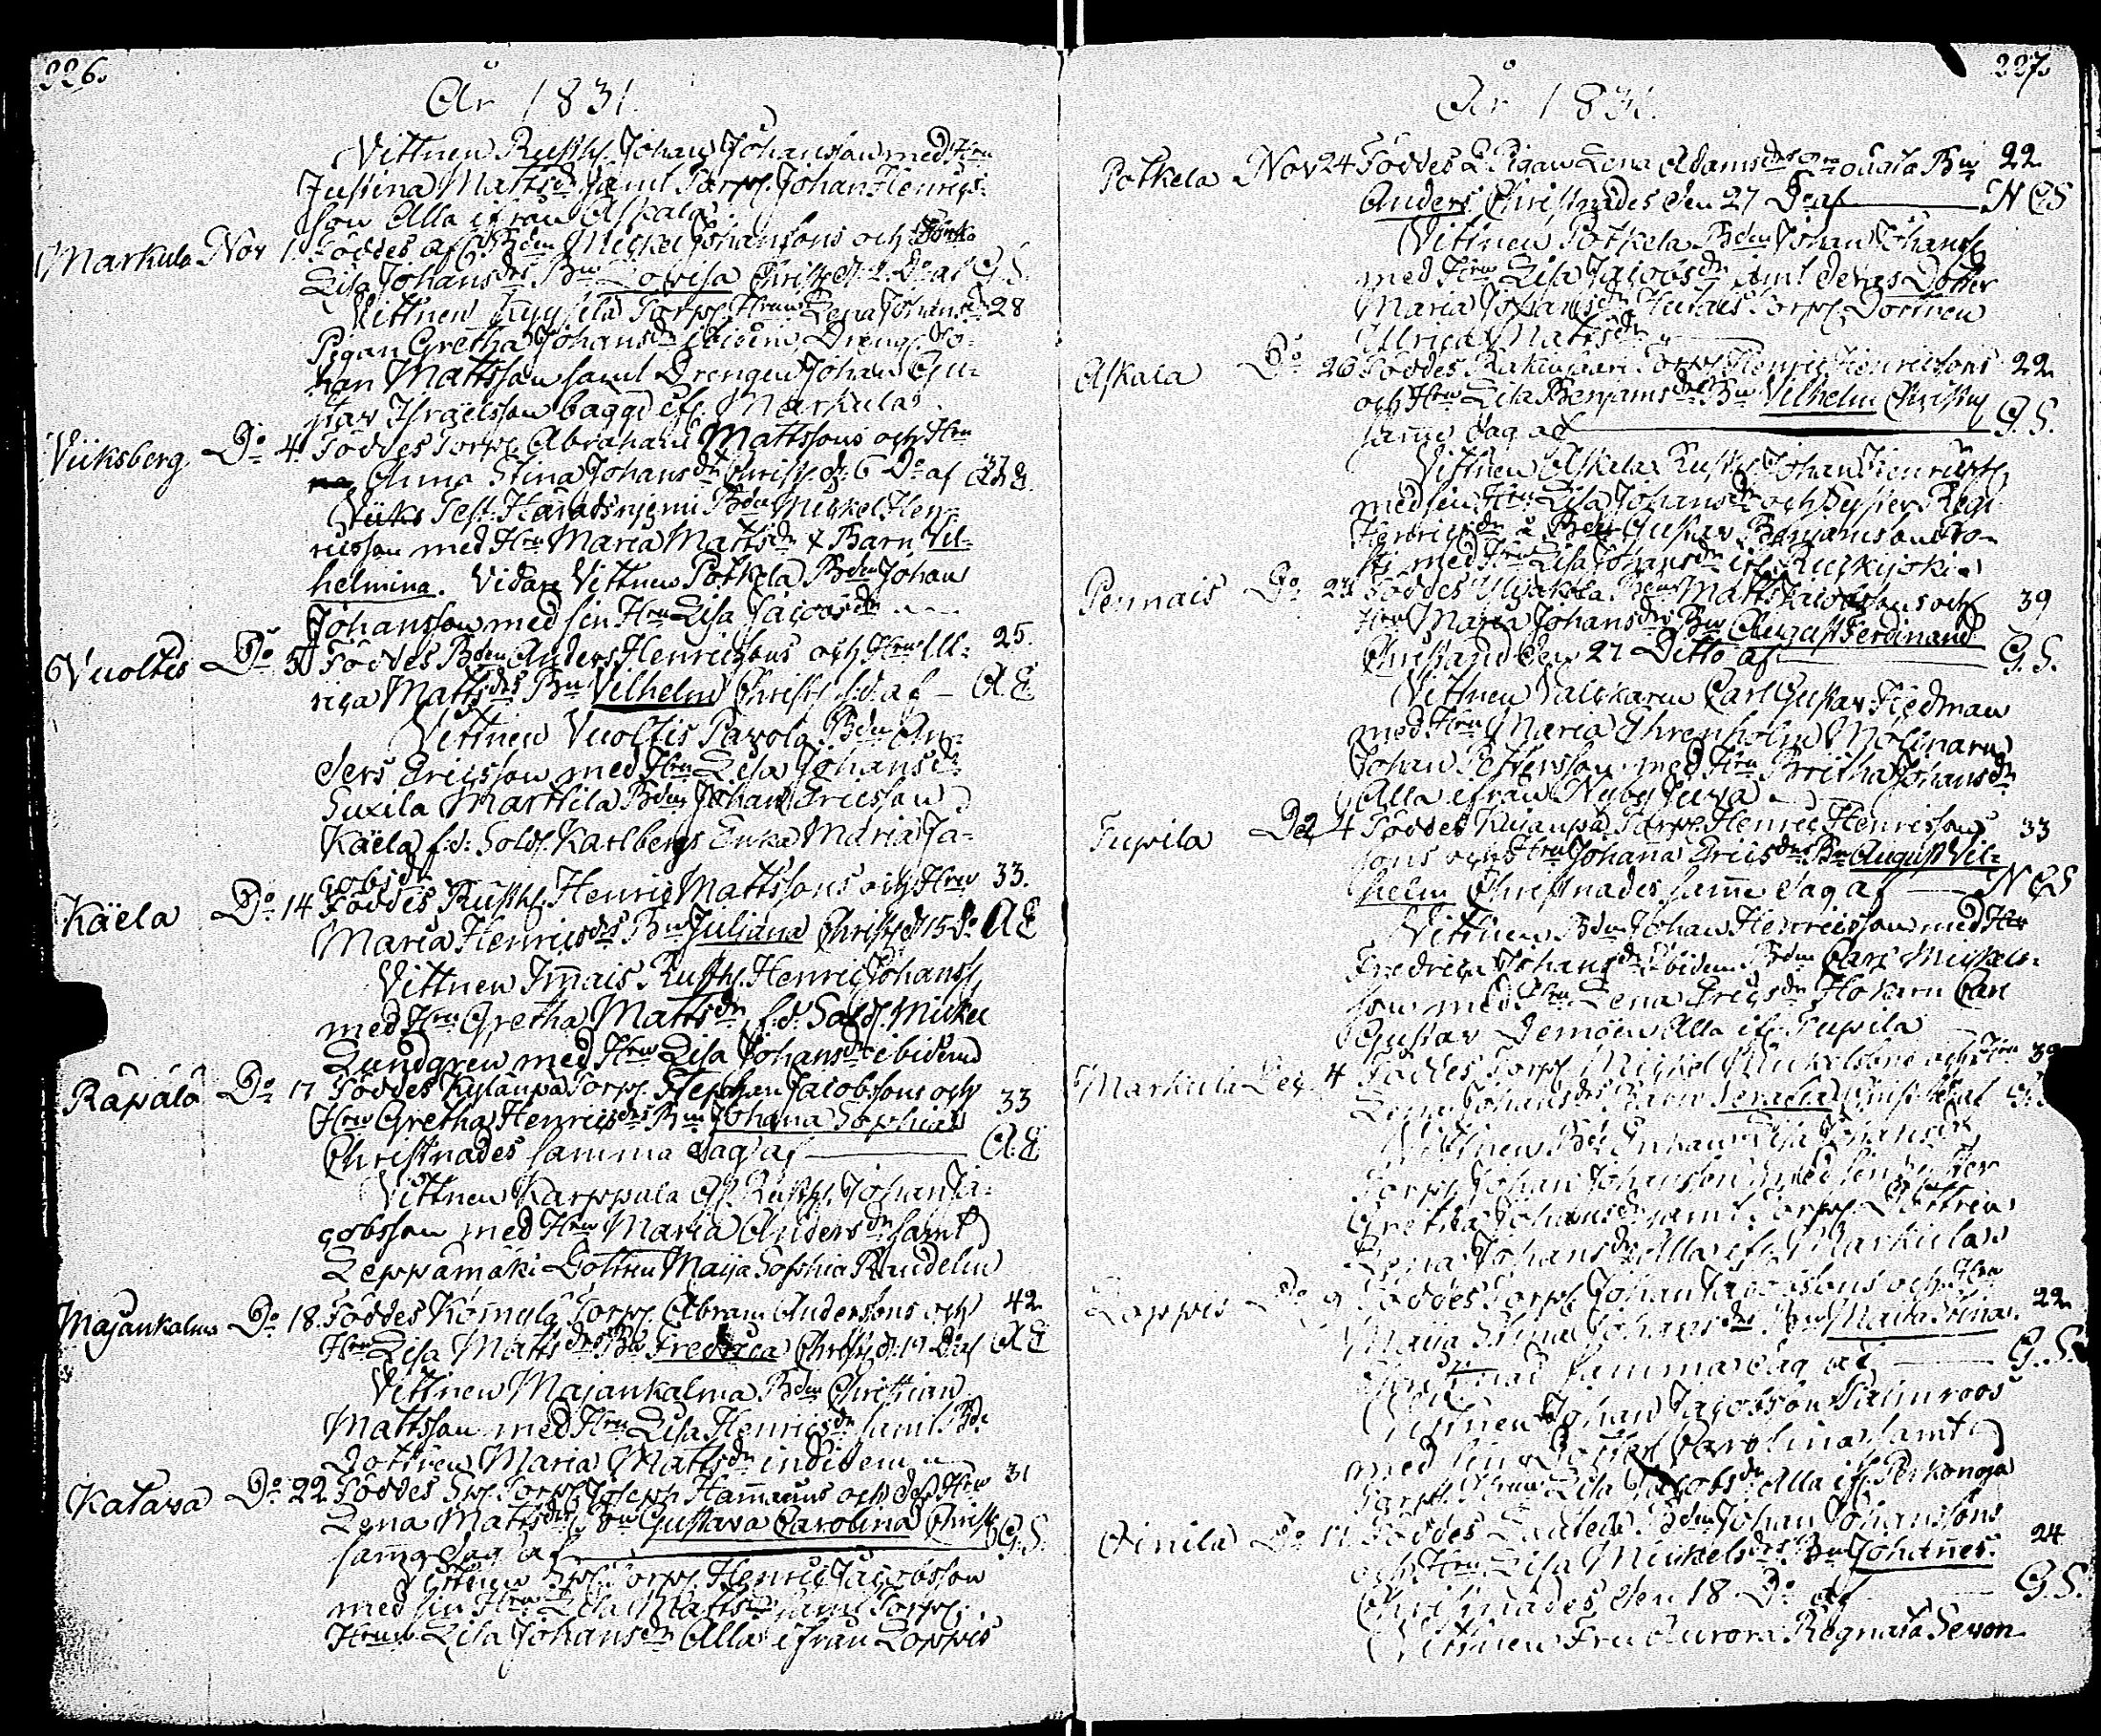 226.
År 1831.
Vittnen Rusth. Johan Johansson med Hru
Justina Mattsdr samt Torp. Johan Henrics-
son Alla ifrån Askala.
Markula Nov 1. Föddes af Bden Mickel Johansons och
Lisa Johansdrs Bn Lovisa Christ. d. 2 Do af G.S.
Vittnen Torp. Hrun Lena Johansdr 28
Pigan Gretha Johansdr ibidem Dreng. Jo-
han Mattsson samt Drengen Johan Gus-
tav Israëlsson bägge if. Markula
Viiksberg Do 4 Föddes Torp. Abraham Mattssons och Hru
Anna Stina Johansdr Christ. d. 6 Do af 37 A.E.
Mickel Hen-
ricsson med Hru Maria Mattsdr x Barn Vil-
helmina. Vidare Vittnen Potkela Bden Johan
Johansson med sin Hru Lisa Jacobsdr
Vuoltis Do 5 Föddes Bden Anders Henricssons och Hru Ul- 25.
rica Mattsdrs Bn Vilhelm Christ. s.d. af A.E.
Vittnen Vuoltis Pavola Bden An-
ders Ericsson med Hru Lisa Johansdr
Suxila Marttila Bden Johan Ericsson
Käela f.d. Sold. Karlbergs Enka Maria Ja-
cobsdr
Käela Do 14 Föddes Rusth. Henric Mattssons och Hru 33.
Maria Henricsdrs Bn Juliana Christ. d. 15 Do A.E.
Vittnen Immais Rusth. Henric Johanss.
med Hru Gretha Mattsdr, f.d. Sold. Mickel
Lundgren med Hru Lisa Johansdr ibidem
Rapala Do 17 Föddes Kylänpä Torp. Stephan Jacobssons och
Hru Gretha Henricsdrs Bn Johana Sophia 33
Christnades samma dag af A.E.
Vittnen Karppala Rusth. Johan Ja-
cobsson med Hru Maria Andersdr samt
Leppämäki Dottren Maija Sophia Randelin
Majankalma Do 18. Föddes Torp. Abram Anderssons och 42
Hru Lisa Mattsdrs Bn Fredrica Christ. d. 19 Do af A.E.
Vittnen Majankalma Bden Christian
Mattsson med Hru Lisa Henricsdr samt Bde
Dottren Maria Mattsdr indidem
Katava Do 22 Föddes Torp. Joseph Hammarens och dess Hru 31
Lena Mattsdrs Bn Gustava Carolina Christ.
samma dag af G.S.
Vittnen Torp. Henric Jacobsson
med sin Hru Lisa Mattsdr samt Torp.
Hrun Lisa Johansdr Alla ifrån Loppis
227.
År 1831.
Potkela Nov 24 Föddes Pigan Lena Adamsdrs oäkta Bn 22
Anders Christnades den 27 Do af N C S
Vittnen Potkela Bden Johan Johanss.
med Hru Lisa Jacobsdr samt deras Dotter
Maria Johansdr Torp. Dottren
Ulrica Mattsdr
Askala Do 26 Föddes Torp. Henric Henricssons 22
och Hru Lisa Benjamsdrs Bn Vilhelm Christn.
samma dag af G.S.
Vittnen Askala Rusth. Johan Henricss.
med sin Hru Lisa Johansdr och Syster Regi
Henricsdr Gustav Benjamsson
med Hru Lisa Johansdr if. Ruskijoki
Pernais Do 23 Föddes Ylijakola Bden Matts Jacobssons och 39
Hru Maria Johansdrs Bn August Ferdinand
Christnad den 27 Ditto af G.S.
Vittnen Valckaren Carl Gustav Hedman
med Hru Maria Ehrenholm Mölinaren
Johan Pettersson med Hru Britha Johansdr
Alla ifrån Nyby
Tupila Dec 4 Föddes Kujanpä Torp. Henric Henricssons 33
sons och Hru Johanna Ericsdrs Bn August Vil-
helm Christnades samma dag af N C S
Vittnen Bden Johan Henricsson med Hru
Fredrica Johansdr ibidem Bden Carl Mickels-
son med Hru Lena Ericsdr Carl
Gustav Alla if. Tupila
Markula Dec. 4 Föddes Torp. Mickel Mickelssons och Hru 39
Lena Johansdrs Barn Serafia Christ. af G.S.
Vittnen Bde Enkan Lisa Johansdr
Torp. Johan Johansson med sin Syster
Gretha Johansdr samt Torp. Dottren
Lena Johansdr Alla if. Markula
Loppis Do 9 Föddes Torp. Johan Jacobssons och Hru
Maija Stina Johansdrs Bn Maria Stina. 22
Christnad samma dag af G.S.
Vittnen Johan Jacobsson Palmroos
med sin Dotter Carolina samt
Torp. Hrun Lisa Jacobsdr Alla if. Perkonoja
Oinila Do 11 Föddes Bden Johan Johanssons
och Hru Lisa Mickelsdrs Bn Johannes. 24
Christnades den 18 Do af G.S.
Vittnen Fru Aurora Regnata Sevon